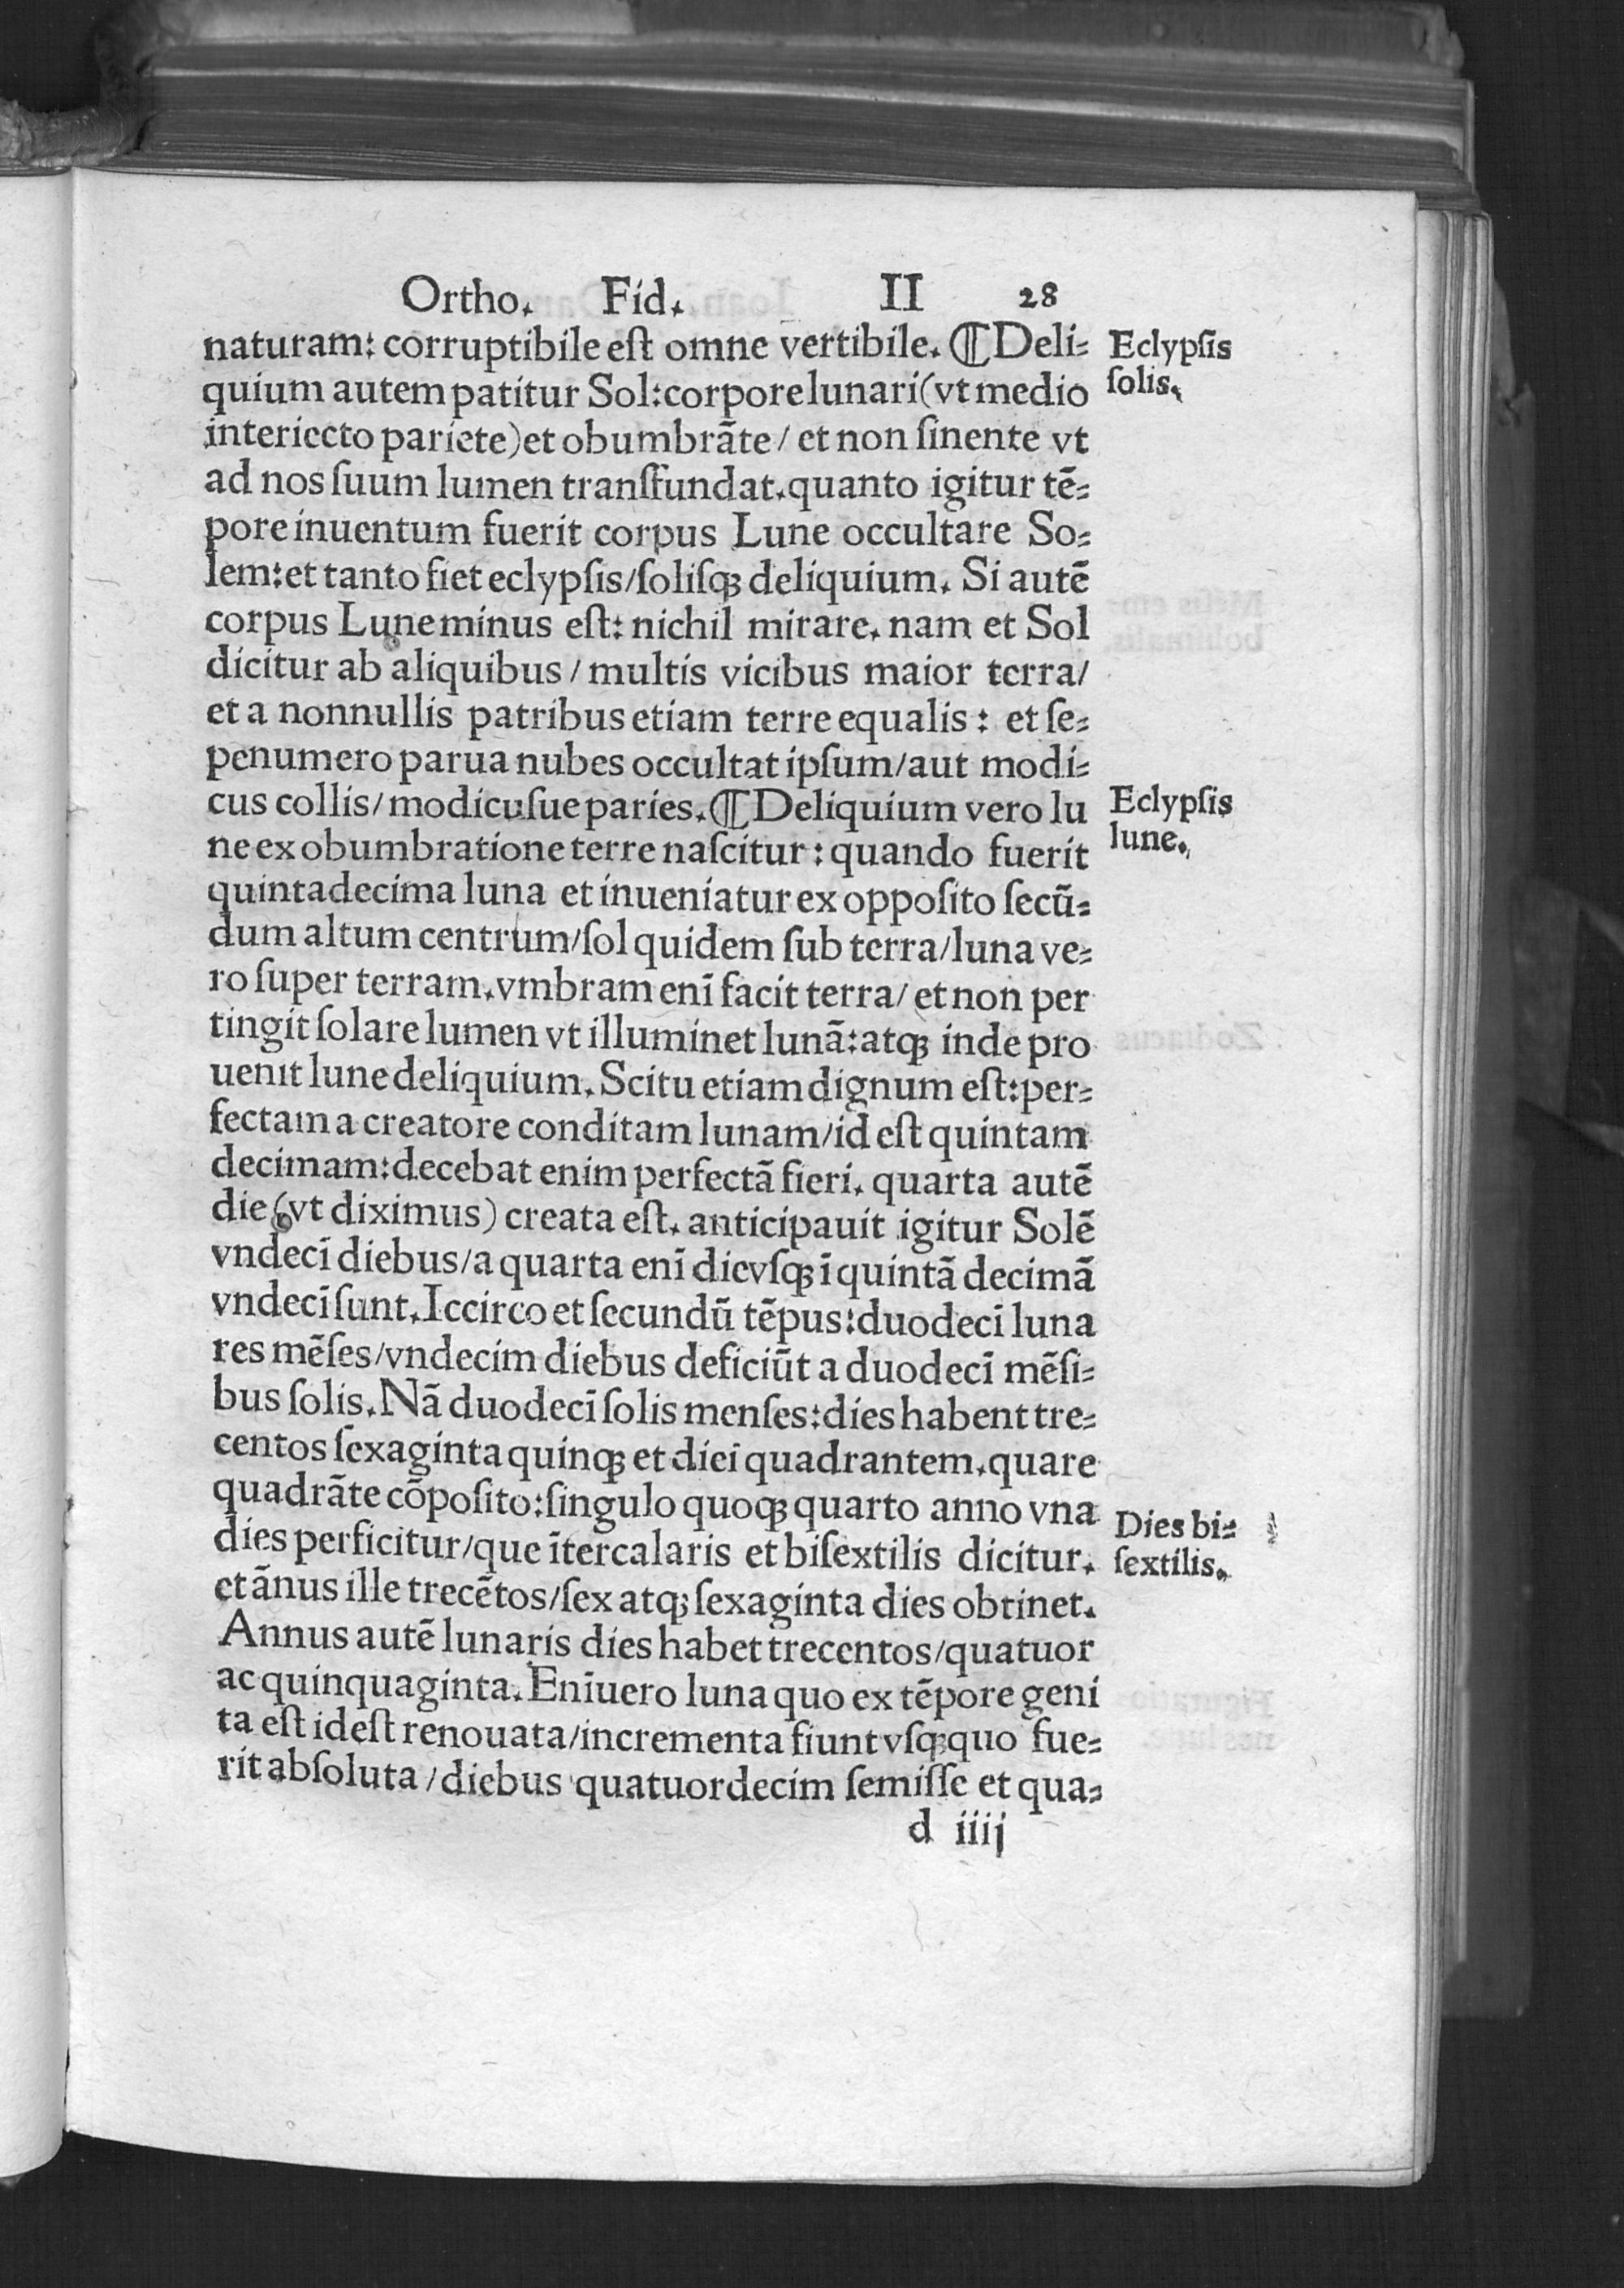 Ortho. Fid. II 28
naturam: corruptibile eſt omne vertibile. ¶ Deli-
Eclypſis
ſolis.
quium autem patitur Sol: corpore lunari (vt medio
interiecto pariete) et obumbrāte / et non ſinente vt
ad nos ſuum lumen tranſfundat. quanto igitur tē-
pore inuentum fuerit corpus Lune occultare So-
lem: et tanto fiet eclypſis / ſoliſqꝫ deliquium. Si autē
corpus Lune minus eſt: nichil mirare. nam et Sol
dicitur ab aliquibus / multis vicibus maior terra /
et a nonnullis patribus etiam terre equalis: et ſe-
penumero parua nubes occultat ipſum / aut modi-
cus collis / modicuſue paries. ¶ Deliquium vero lu
Eclypſis
lune.
ne ex obumbratione terre naſcitur: quando fuerit
quintadecima luna et inueniatur ex oppoſito ſecū-
dum altum centrum / ſol quidem ſub terra / luna ve-
ro ſuper terram. vmbram enī facit terra / et non per
tingit ſolare lumen vt illuminet lunā: atqꝫ inde pro
uenit lune deliquium. Scitu etiam dignum eſt: per-
fectam a creatore conditam lunam / id eſt quintam
decimam: decebat enim perfectā fieri. quarta autē
die (vt diximus) creata eſt. anticipauit igitur Solē
vndecī diebus / a quarta enī die vſqꝫ ī quintā decimā
vndecī ſunt. Iccirco et ſecundū tēpus: duodecī luna
res mēſes / vndecim diebus deficiūt a duodecī mēſi-
bus ſolis. Nā duodecī ſolis menſes: dies habent tre-
centos ſexaginta quinqꝫ et diei quadrantem. quare
quadrāte cōpoſito: ſingulo quoqꝫ quarto anno vna
Dies bi-
ſextilis.
dies perficitur / que ītercalaris et biſextilis dicitur.
et ānus ille trecētos / ſex atqꝫ ſexaginta dies obtinet.
Annus autē lunaris dies habet trecentos / quatuor
ac quinquaginta. Enīuero luna quo ex tēpore geni
ta eſt id eſt renouata / incrementa fiunt vſqꝫ quo fue-
rit abſoluta / diebus quatuordecim ſemiſſe et qua-
d iiij